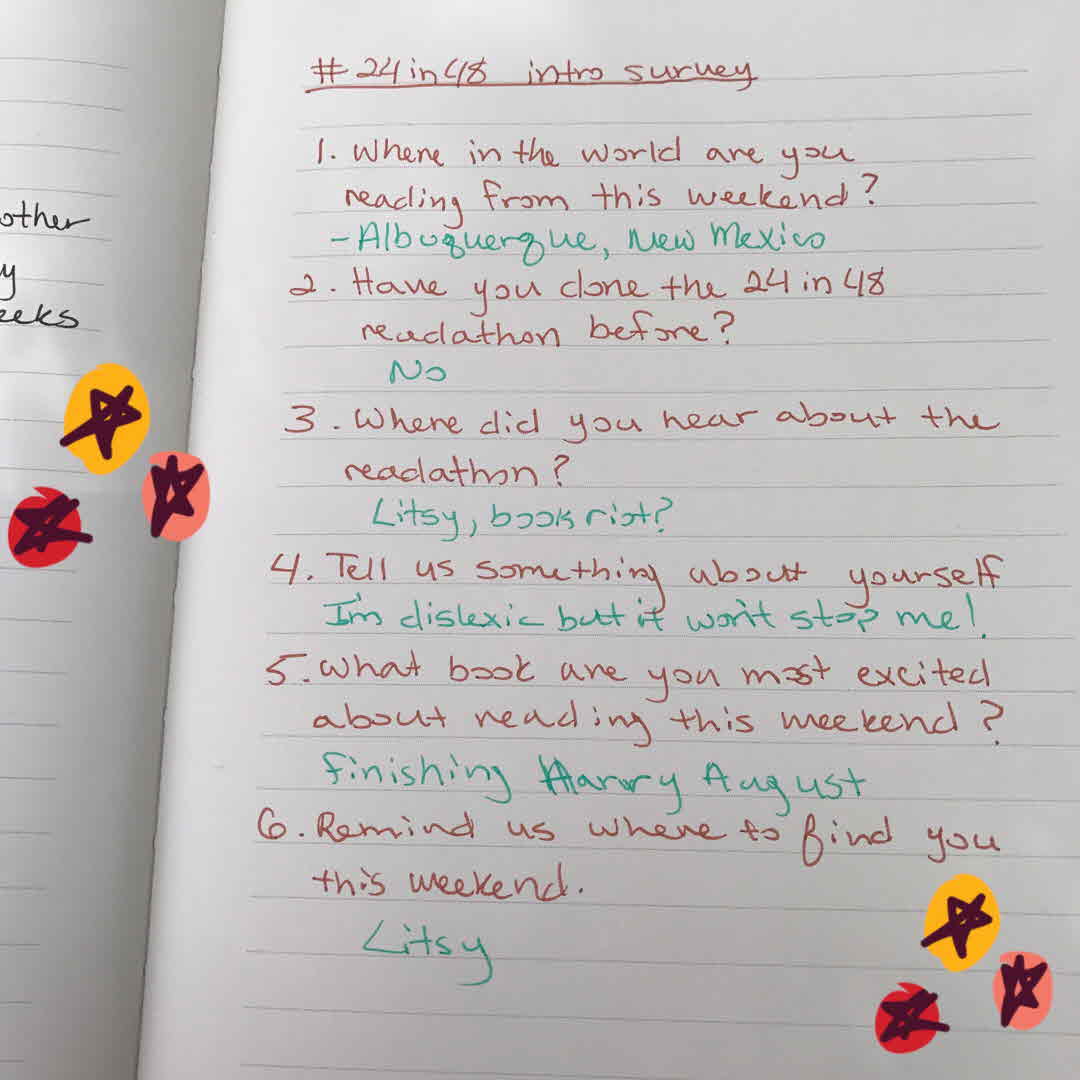 other
y
eeks
# 24 in 48 intro survey
1. Where in the world are you
reading from this weekend?
- Albuquerque, New Mexico
2. Have you done the 24 in 48
readathon before?
No
3. Where did you hear about the
readathon?
Litsy, book riot?
4. Tell us something about yourself
I'm dislexic but it won't stop me!
5. What book are you most excited
about reading this weekend?
finishing Harry August
6. Remind us where to find you
this weekend.
Litsy